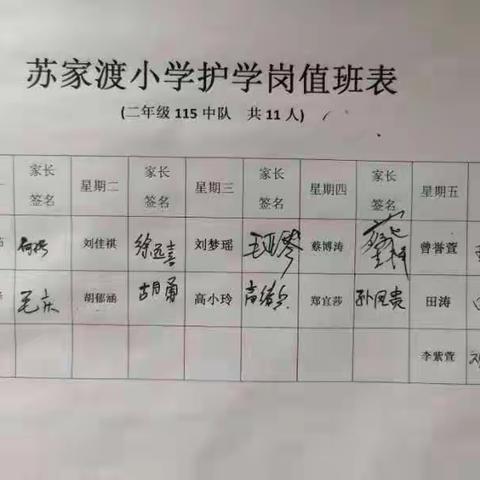 苏家渡小学护学岗值班表
(二年级 115 中队 共 11 人)
家长签名 星期二 家长签名 星期三 家长签名 星期四 家长签名 星期五
刘佳祺 徐远喜 刘梦瑶 蔡博涛 曾誉萱
毛庆 胡郁涵 胡勇 高小玲 郑宜莎 孙凤贵 田涛
李紫萱